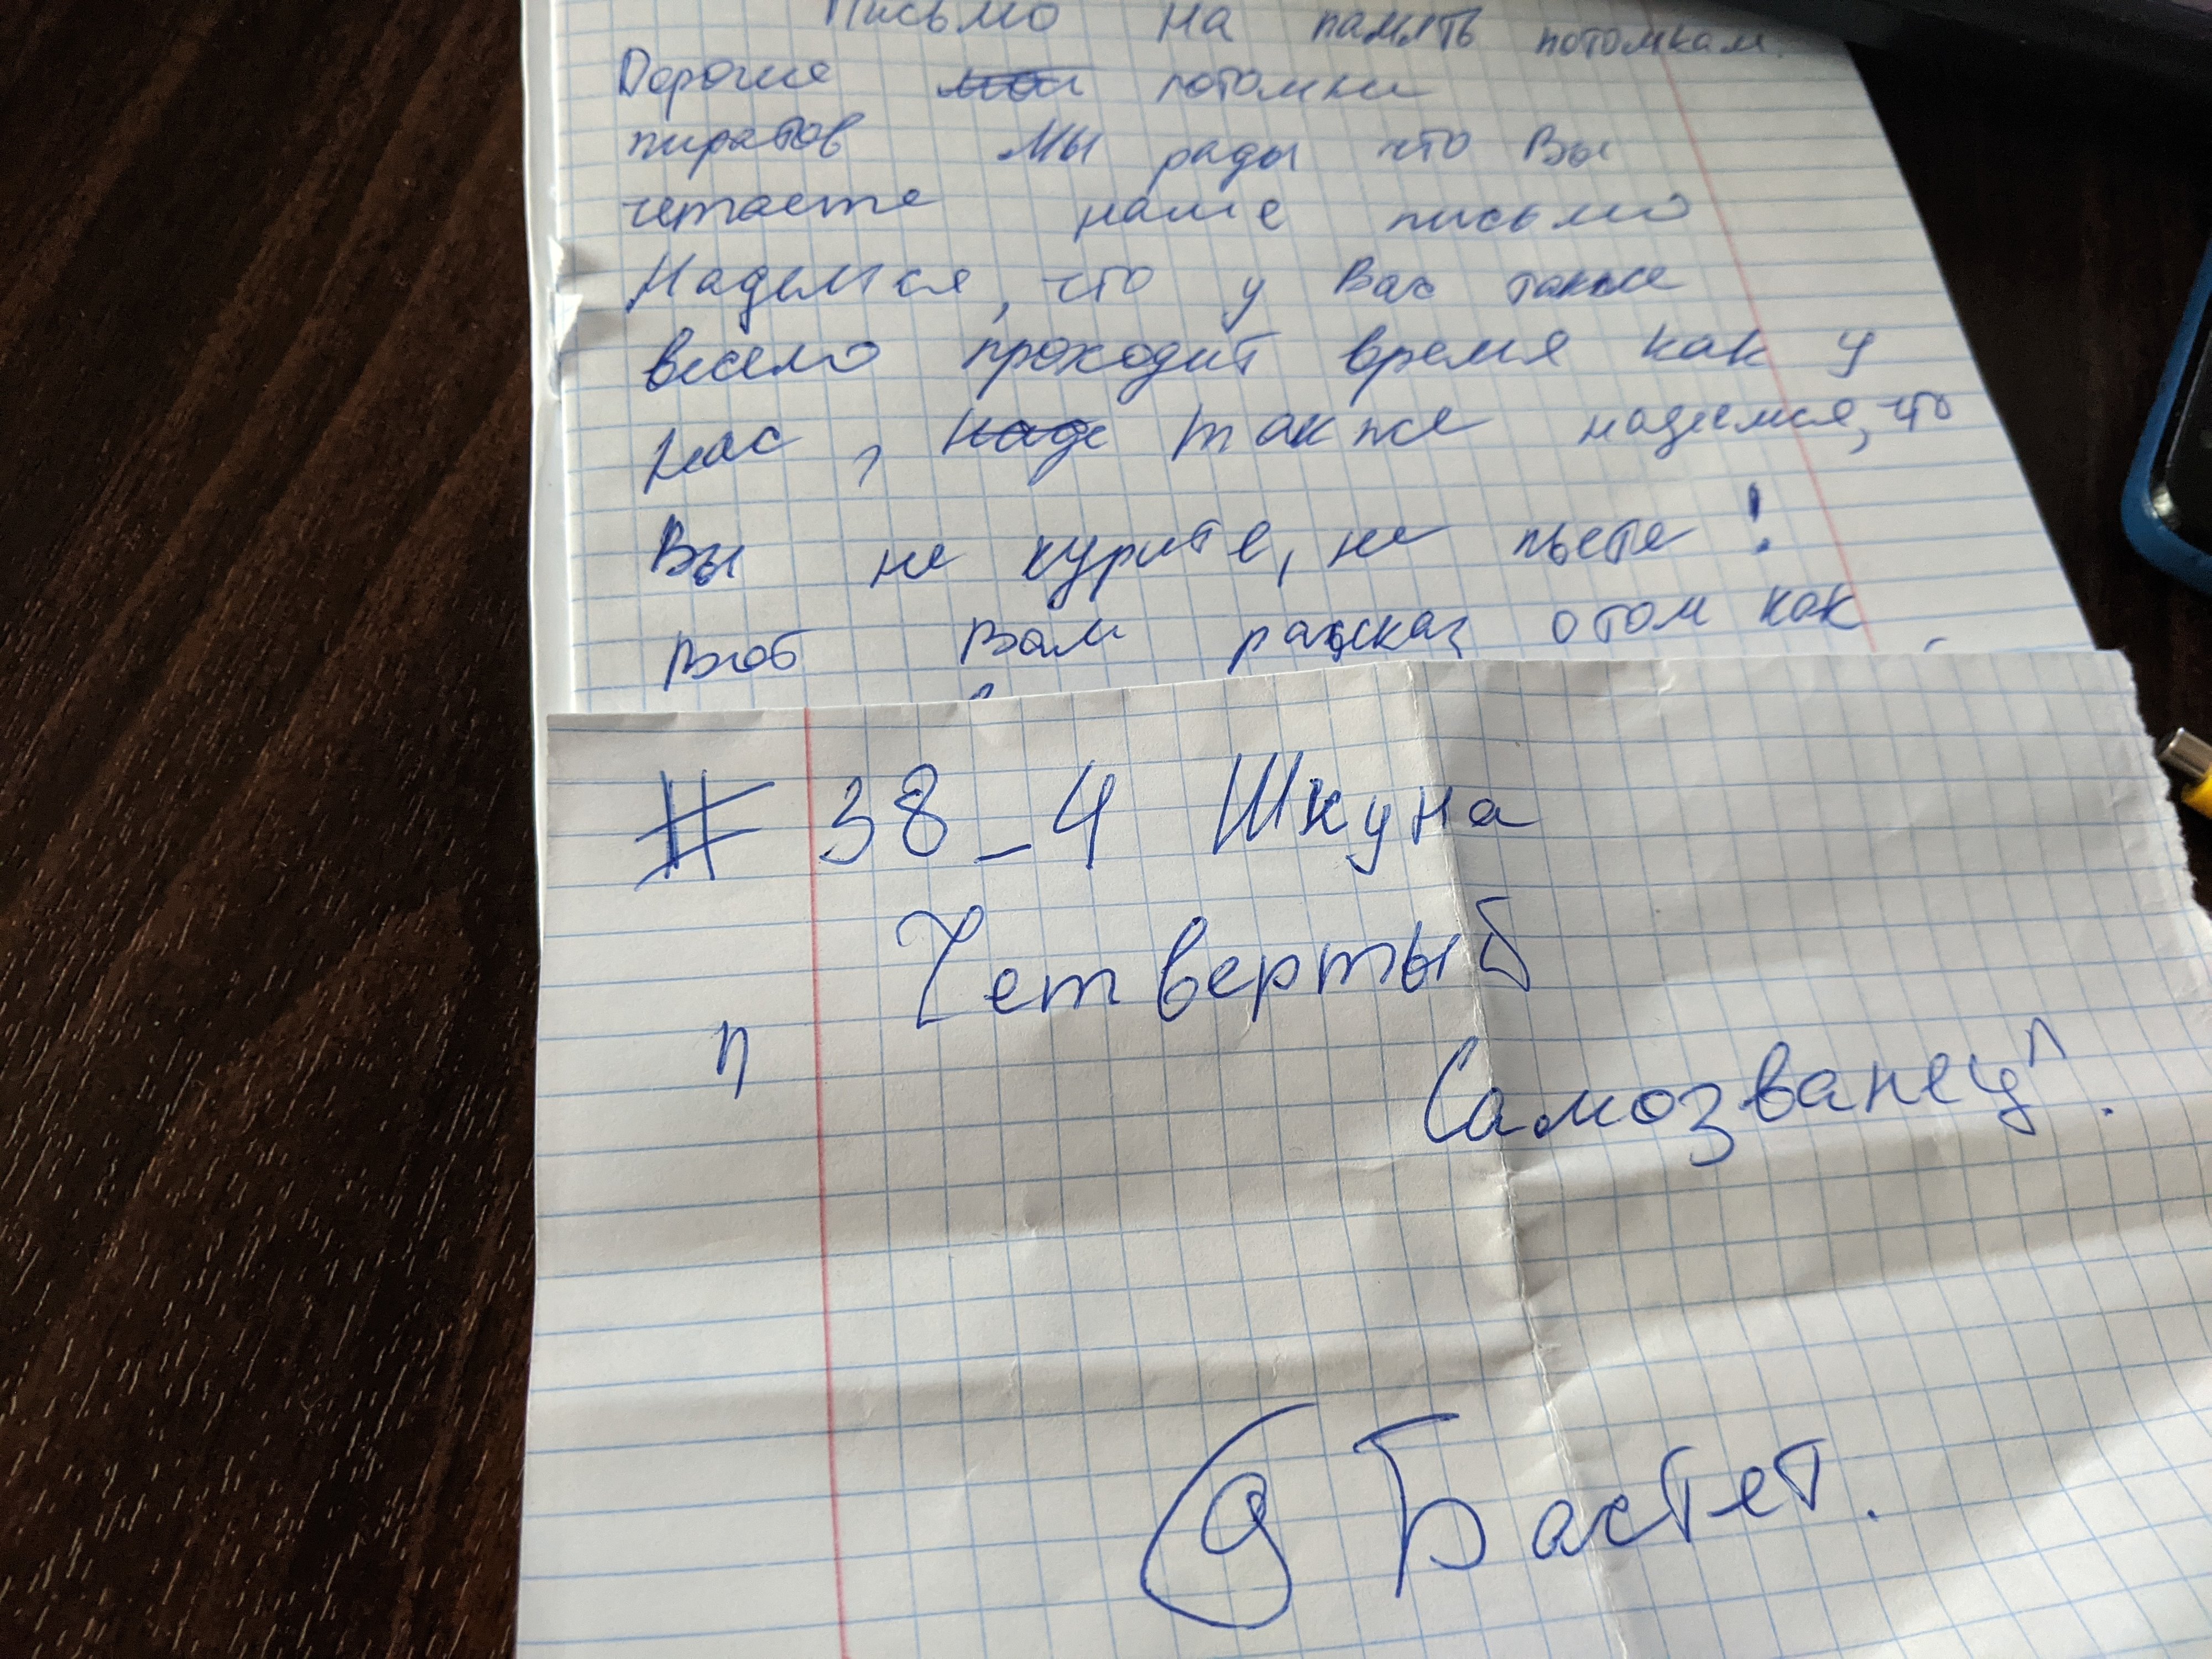 Письмо на память потомкам.
Дорогие потомки
пиратов Мы рады что Вы
четаете наше письмо
Надеемся, что у Вас также
весело проходит время как у
нас, также надеемся, что
Вы не курите, не пьете!
Вот Вам рассказ о том как
# 38_4 Шкуна
Четвертый
" Самозванец".
@ Бастет.